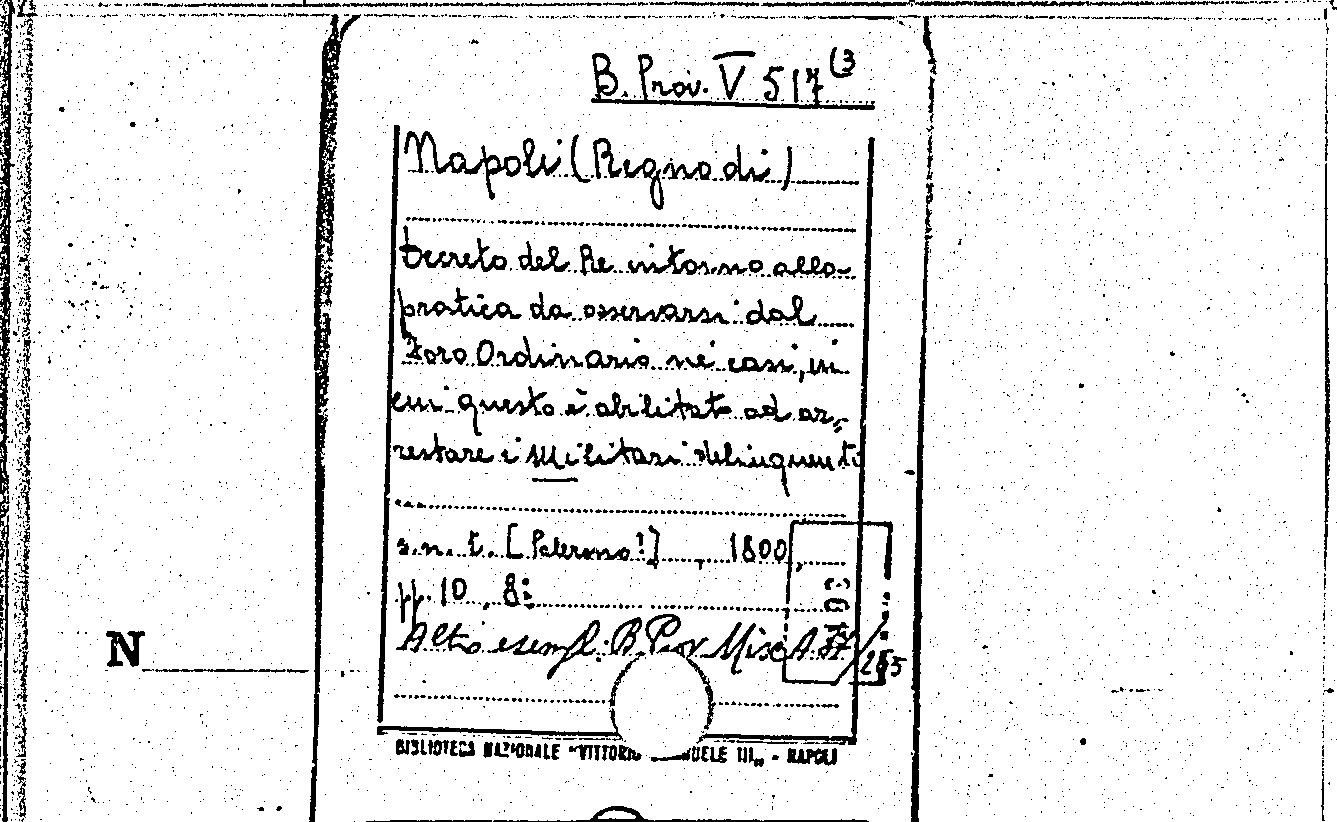 B. Prov. V 517 (3
Napoli (Regno di)
Decreto del Re intorno alla
pratica da osservarsi dal
Foro Ordinario ne' casi, in
cui questo è abilitato ad ar=
restare i Militari delinquenti
s.n.t. [Palermo?], 1800,
pp. 10, 8:
Altro esempl: B. Prov Misc A.
265
N
BIBLIOTECA NAZIONALE "VITTORIO UELE III„ - NAPOLI